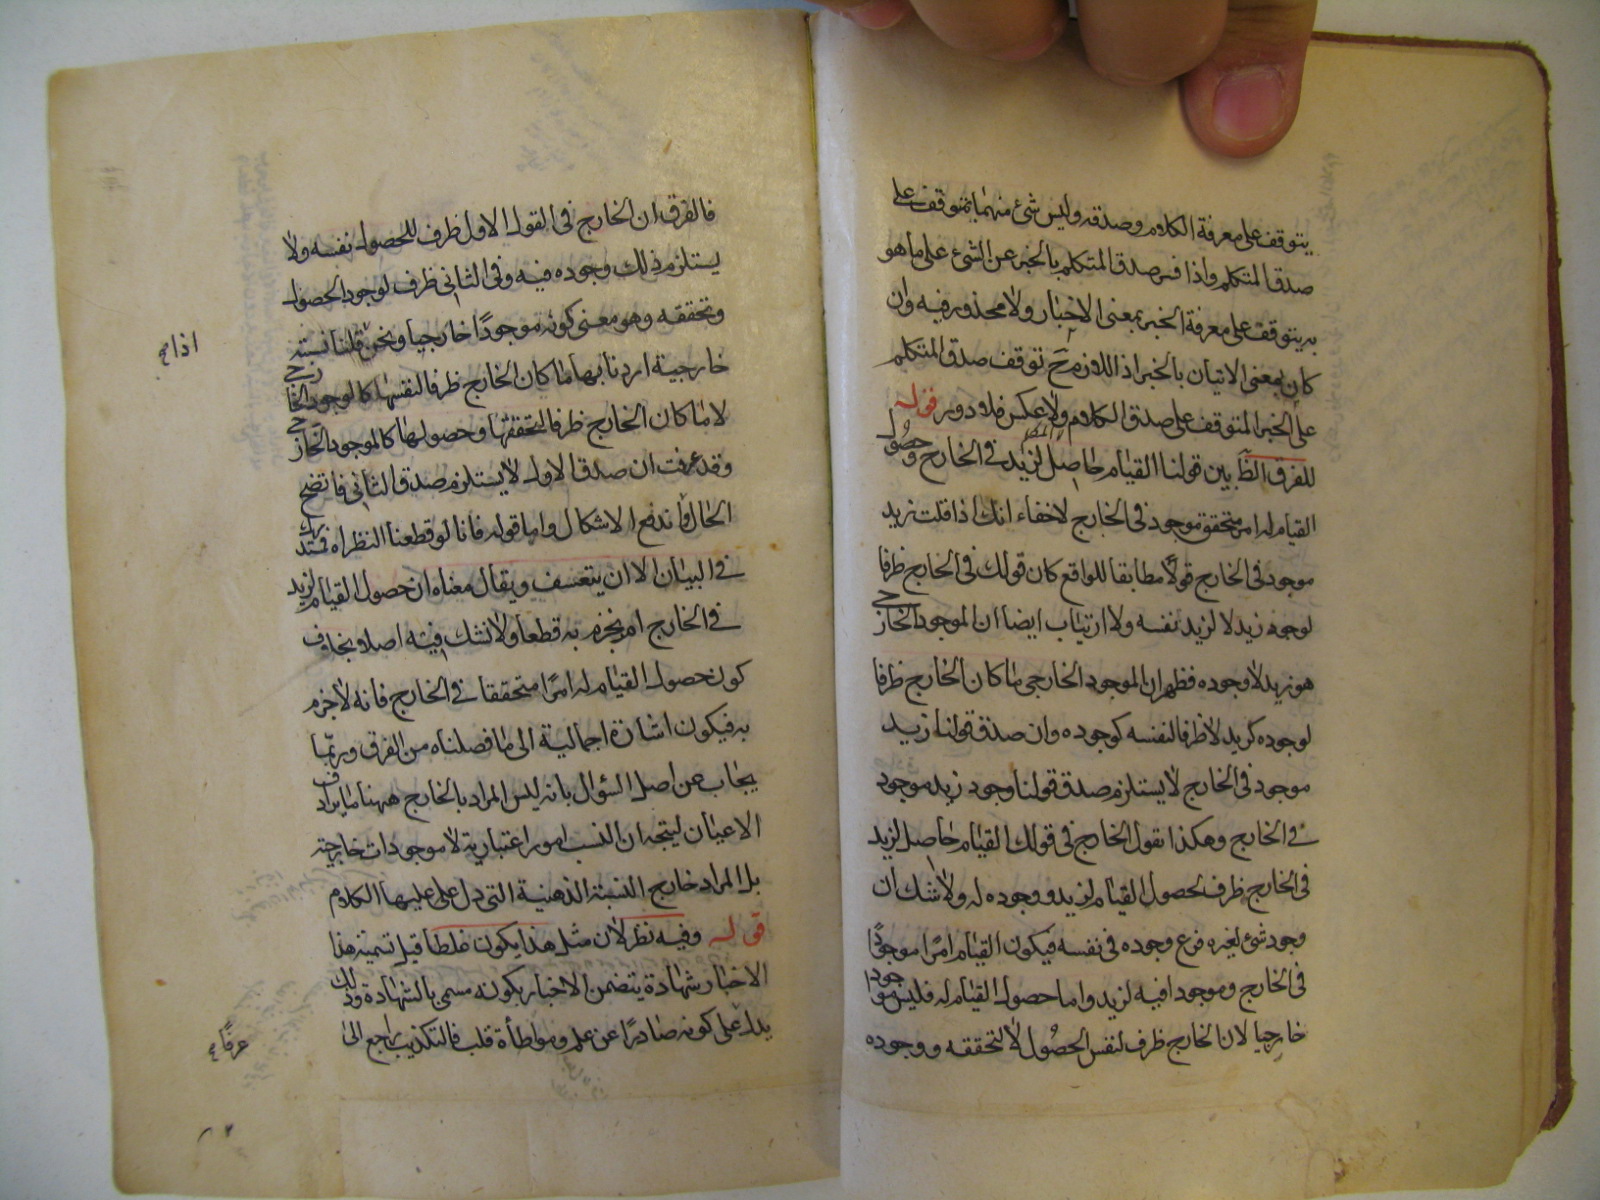 يتوقف على معرفة الكلام وصدقه وليس شئ منهما بمتوقف على
صدق المتكلم واذا فسر صدق المتكلم بالخبر عن الشئ على ما هو
به يتوقف على معرفة الخبر بمعنى الاخبار ولا محذور فيه وان
كان بمعنى الاتيان بالخبر اذ اللازم ح توقف صدق المتكلم
على الخبر المتوقف على صدق الكلام ولا عكس فلا دور قوله
للفرق الظ بين قولنا القيام حاصل لزيد في الخارج وحصول
القيام له امر متحقق موجود في الخارج لا خفاء انك اذا قلت زيد
موجود في الخارج قولا مطابقا للواقع كان قولك في الخارج ظرفا
لوجود زيد لا لزيد نفسه ولا ارتياب ايضا ان الموجود الخارجي
هو زيد لا وجوده فظهر ان الموجود الخارجي ما كان الخارج ظرفا
لوجوده كزيد لا ظرفا لنفسه كوجوده وان صدق قولنا زيد
موجود في الخارج لا يستلزم صدق قولنا وجود زيد موجود
في الخارج وهكذا نقول الخارج في قولك القيام حاصل لزيد
في الخارج ظرف لحصول القيام لزيد ووجوده له ولا شك ان
وجود شئ لغيره فرع وجوده في نفسه فيكون القيام امرا موجودا
في الخارج وموجودا فيه لزيد واما حصول القيام له فليس موجودا
خارجيا لان الخارج ظرف لنفس الحصول لا لتحققه ووجوده
فالفرق ان الخارج في القول الاول ظرف للحصول نفسه ولا
يستلزم ذلك وجوده فيه وفي الثاني ظرف لوجود الحصول
وتحققه وهو معنى كونه موجودا خارجيا ونحن قلنا نسبته
خارجية اردنا بها ما كان الخارج ظرفا لنفسها كالوجود الخارجي
لا ما كان الخارج ظرفا لتحققها وحصولها كالموجود الخارجي
وقد عرفت ان صدق الاول لا يستلزم صدق الثاني فاتضح
الحال واندفع الاشكال واما قوله فانا لو قطعنا النظر اه
في البيان الا ان يتعسف ويقال معناه ان حصول القيام لزيد
في الخارج امر نجزم به قطعا ولا نشك فيه اصلا بخلاف
كون حصول القيام له امرا متحققا في الخارج فانه لا جزم
به فيكون اشارة اجمالية الى ما فصلناه من الفرق وربما
يجاب عن اصل السؤال بانه ليس المراد بالخارج ههنا ما يرادف
الاعيان ليتجه ان النسب امور اعتبارية لا موجودات خارجية
بل المراد خارج النسبة الذهنية التي دل على عليها الكلام
قوله وفيه نظر لان مثل هذا يكون غلطا قيل تسمية هذا
الاخبار شهادة يتضمن الاخبار بكونه مسمى بالشهادة وذلك
يدل على كونه صادرا عن علم ومواطأة قلب فالتكذيب راجع الى
عرفا